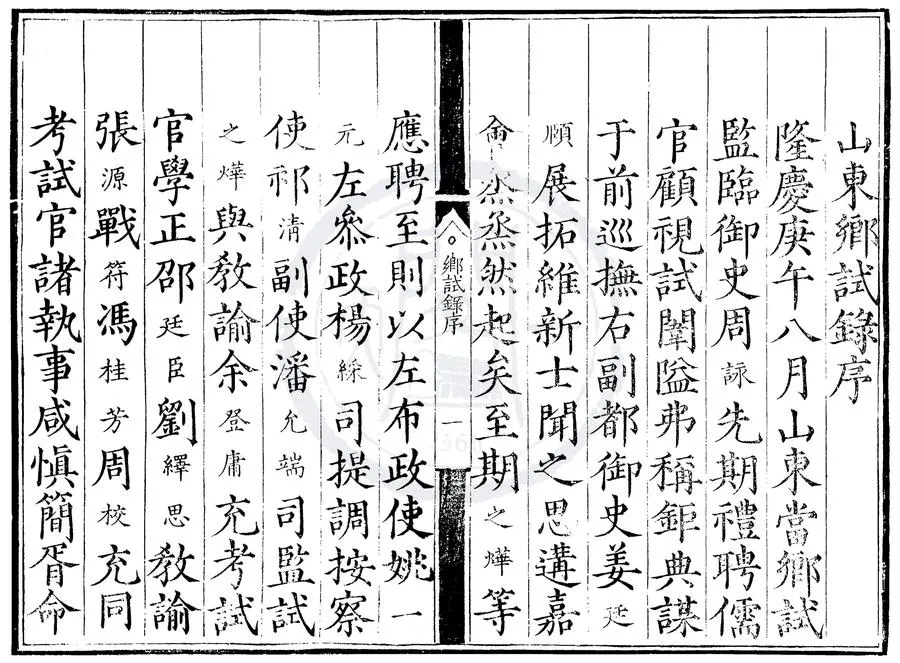 山東鄉試錄序
隆慶庚午八月山東當鄉試
監臨御史周詠先期禮聘儒
官顧視試闈隘弗稱鉅典謀
于前巡撫右副都御史姜廷
頤展拓維新士聞之思遘嘉
會烝烝然起矣至期之燁等
鄉試錄序
一
應聘至則以左布政使姚一
元左叅政楊綵司提調按察
使祁清副使潘允端司監試
之燁與教諭余登庸充考試
官學正邵廷臣劉繹思教諭
張源戰符馮桂芳周校充同
考試官諸執事咸慎簡胥命